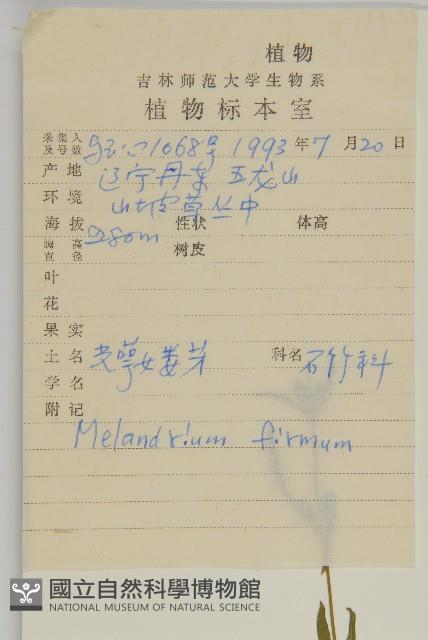 植物
吉林师范大学生物系
植物标本室
采集人及号数 1068号 1993年7月20日
产地 辽宁丹东 五龙山
环境 山坡草丛中
海拔 280m 性状 体高
胸高直径 树皮
叶
花
果实
土名 光萼女娄菜 科名 石竹科
学名
附记
Melandrium firmum
國立自然科學博物館
NATIONAL MUSEUM OF NATURAL SCIENCE